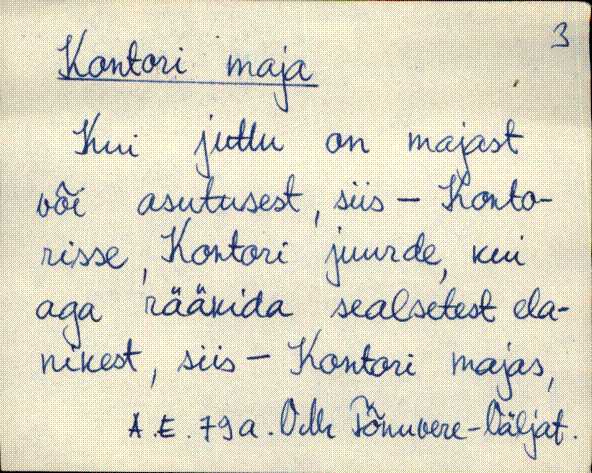 3
Kontori maja
Kui juttu on majast
või asutusest, siis – Konto-
risse, Kontori juurde, kui
aga rääkida sealsetest ela-
nikest, siis – Kontori majas,
A.E. 79a. Tõnuvere-Väljat.